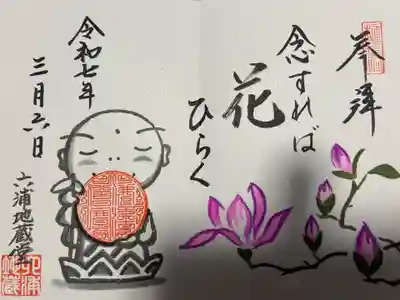 奉拝
念ずれば
花
ひらく
令和七年
三月六日
六浦地蔵堂